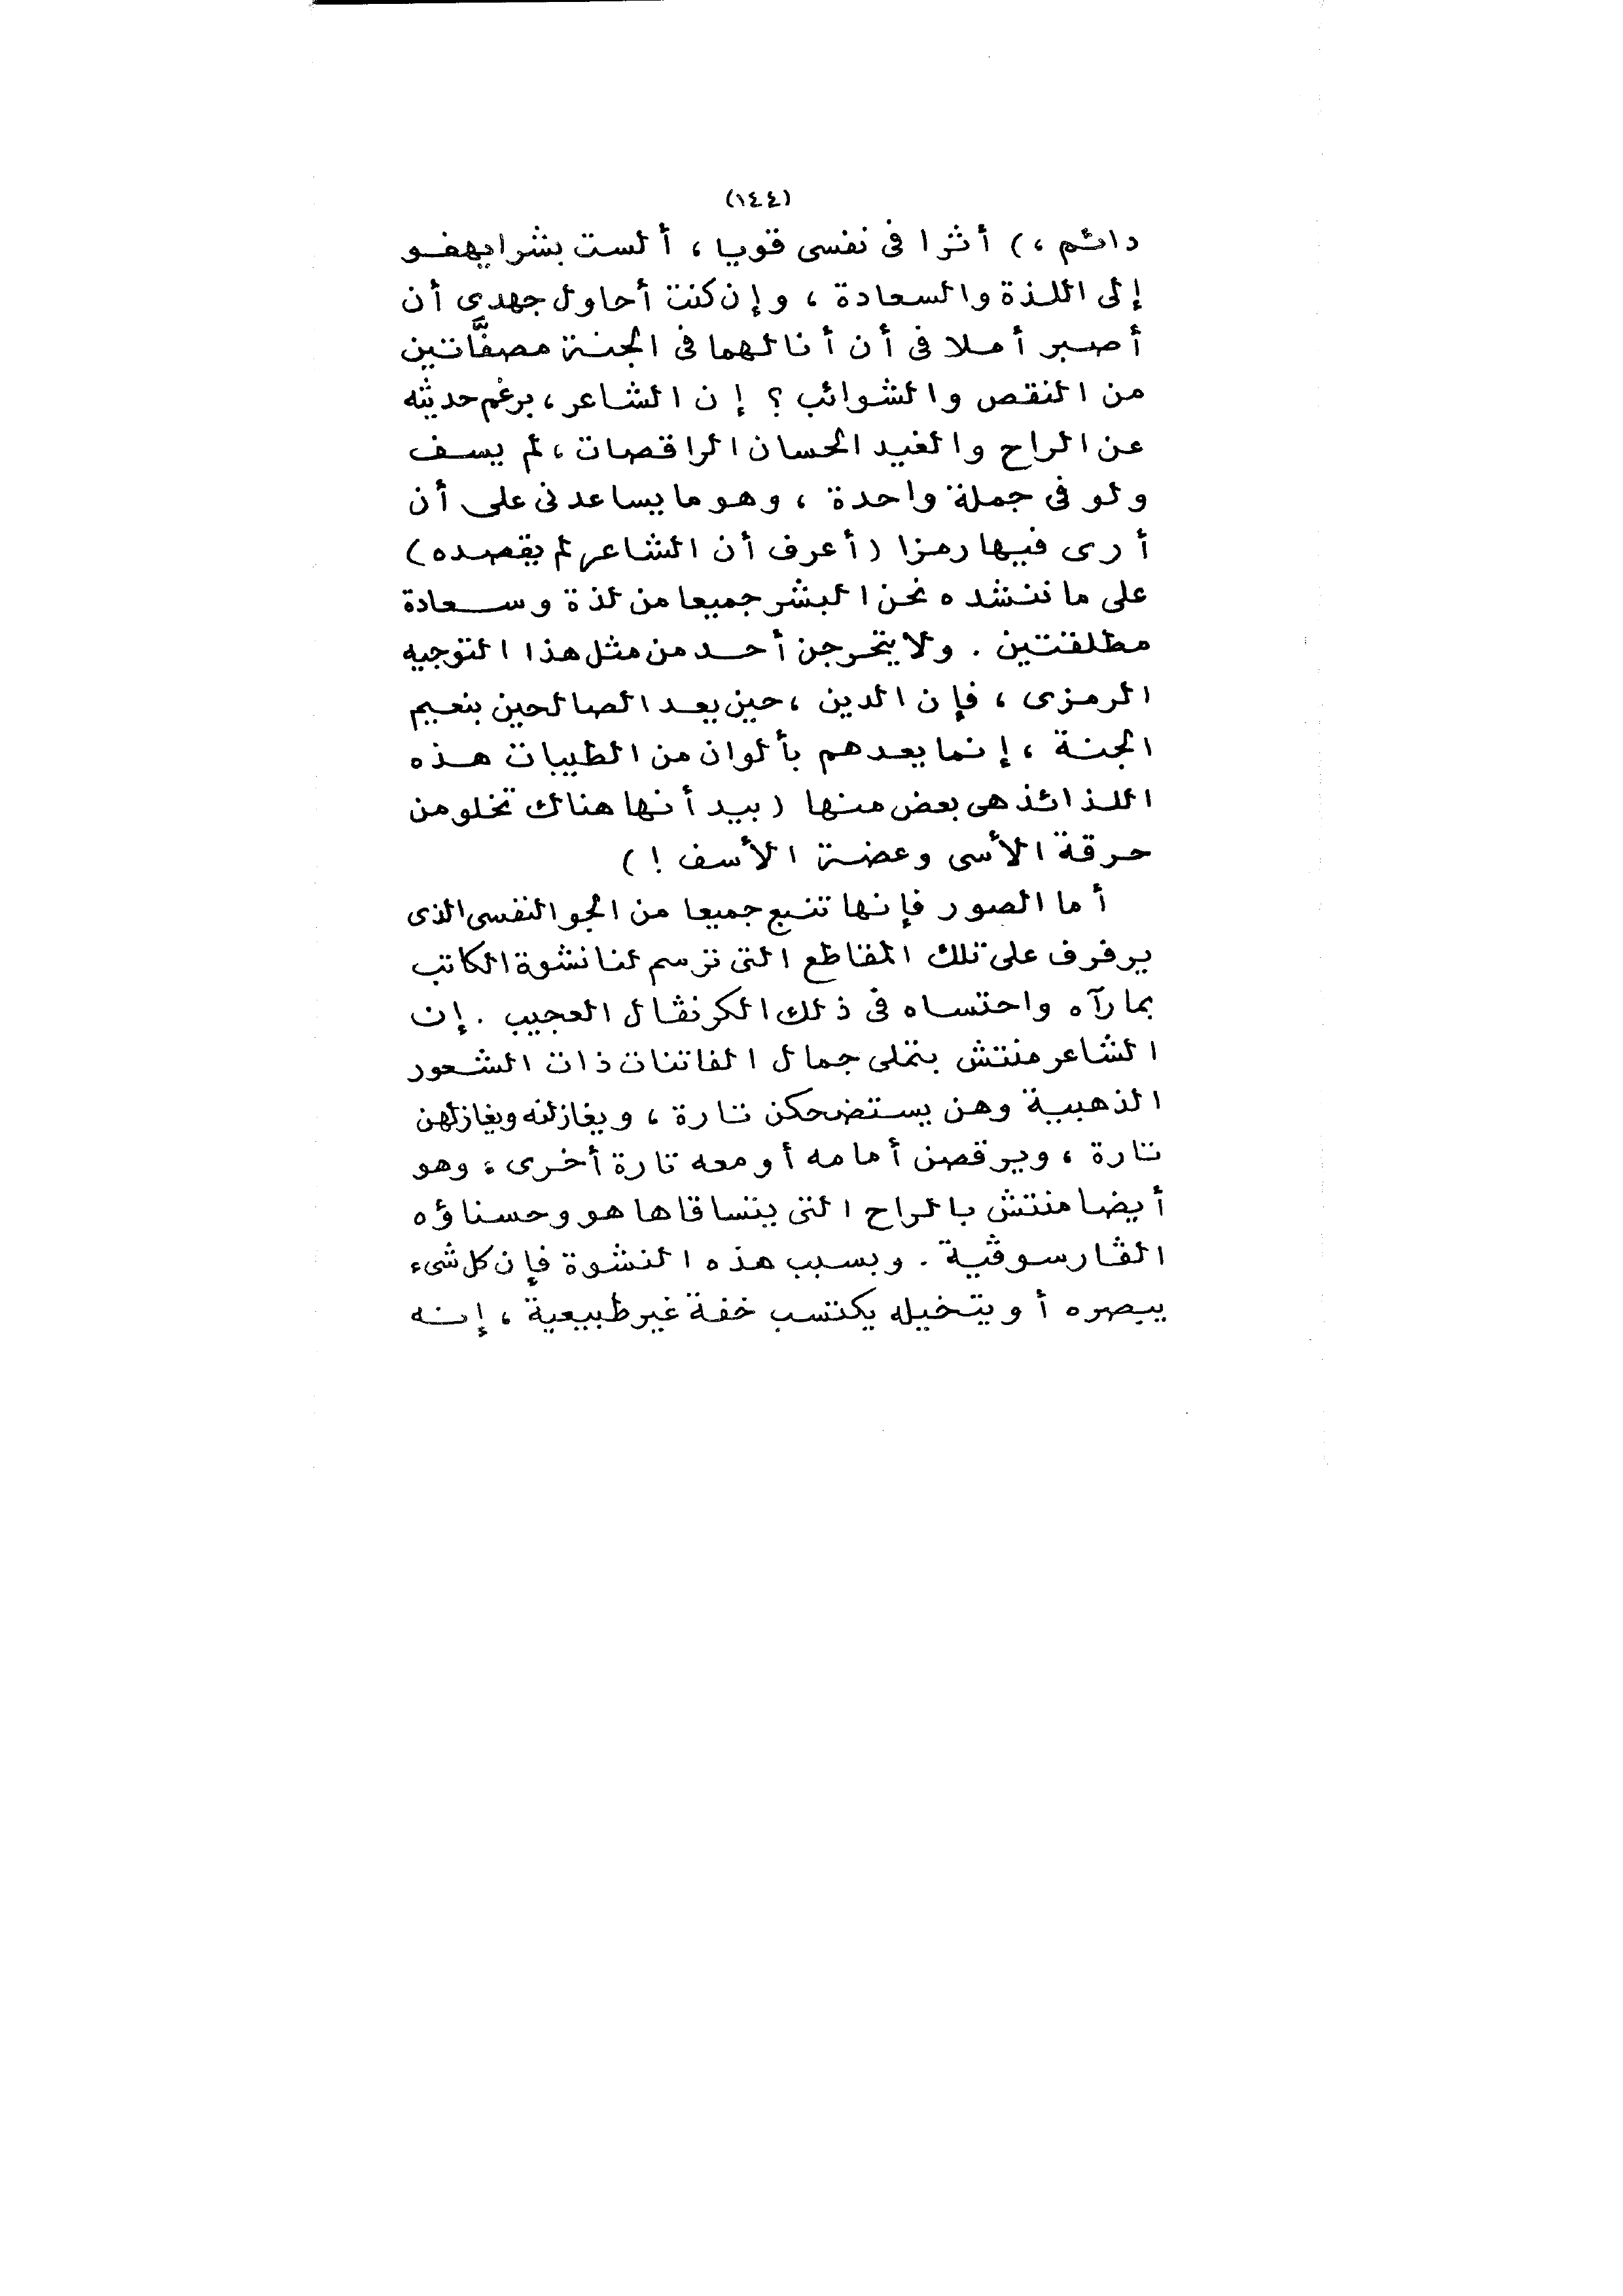 (١٤٤)
دائم ،) أثرا فى نفسى قويا ، ألست بشرا يهفو
إلى اللذة والسعادة ، وإن كنت أحاول جهدى أن
أصبر أملا فى أن أنالهما فى الجنة مصفَّاتين
من النقص والشوائب ؟ إن الشاعر ، برغم حديثه
عن الراح والغيد الحسان الراقصات ، لم يسف
ولو فى جملة واحدة ، وهو ما يساعدنى على أن
أرى فيها رمزا (أعرف أن الشاعر لم يقصده)
على ما ننشده نحن البشر جميعا من لذة وسعادة
مطلقتين . ولا يتحرجن أحد من مثل هذا التوجيه
الرمزى ، فإن الدين ، حين يعد الصالحين بنعيم
الجنة ، إنما يعدهم بألوان من الطيبات هذه
اللذائذ هى بعض منها (بيد أنها هناك تخلو من
حرقة الأسى وعضة الأسف !)
أما الصور فإنها تنبع جميعا من الجو النفسى الذى
يرفرف على تلك المقاطع التى ترسم لنا نشوة الكاتب
بما رآه واحتساه فى ذلك الكرنڤال العجيب . إن
الشاعر منتش بتملى جمال الفاتنات ذات الشعور
الذهبية وهن يستضحكن تارة ، ويغازلنه ويغازلهن
تارة ، ويرقصن أمامه أو معه تارة أخرى ، وهو
أيضا منتش بالراح التى يتساقاها هو وحسناؤه
الڤارسوڤية . وبسبب هذه النشوة فإن كل شىء
يبصره أو يتخيله يكتسب خفة غير طبيعية ، إنه